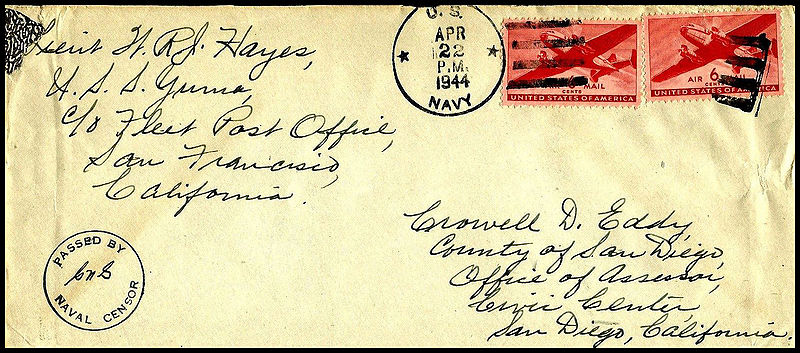 Lieut W. R. J. Hayes,
U. S. S. Yuma,
c/o Fleet Post Office,
San Francisco,
California.
U. S.
APR
22
P.M.
1944
NAVY
MAIL
CENTS
UNITED STATES OF AMERICA
AIR 6
CENTS
UNITED STATES OF AMERICA
PASSED BY
NAVAL CENSOR
Crowell D. Eddy,
County of San Diego,
Office of Assessor,
Civic Center,
San Diego, California.